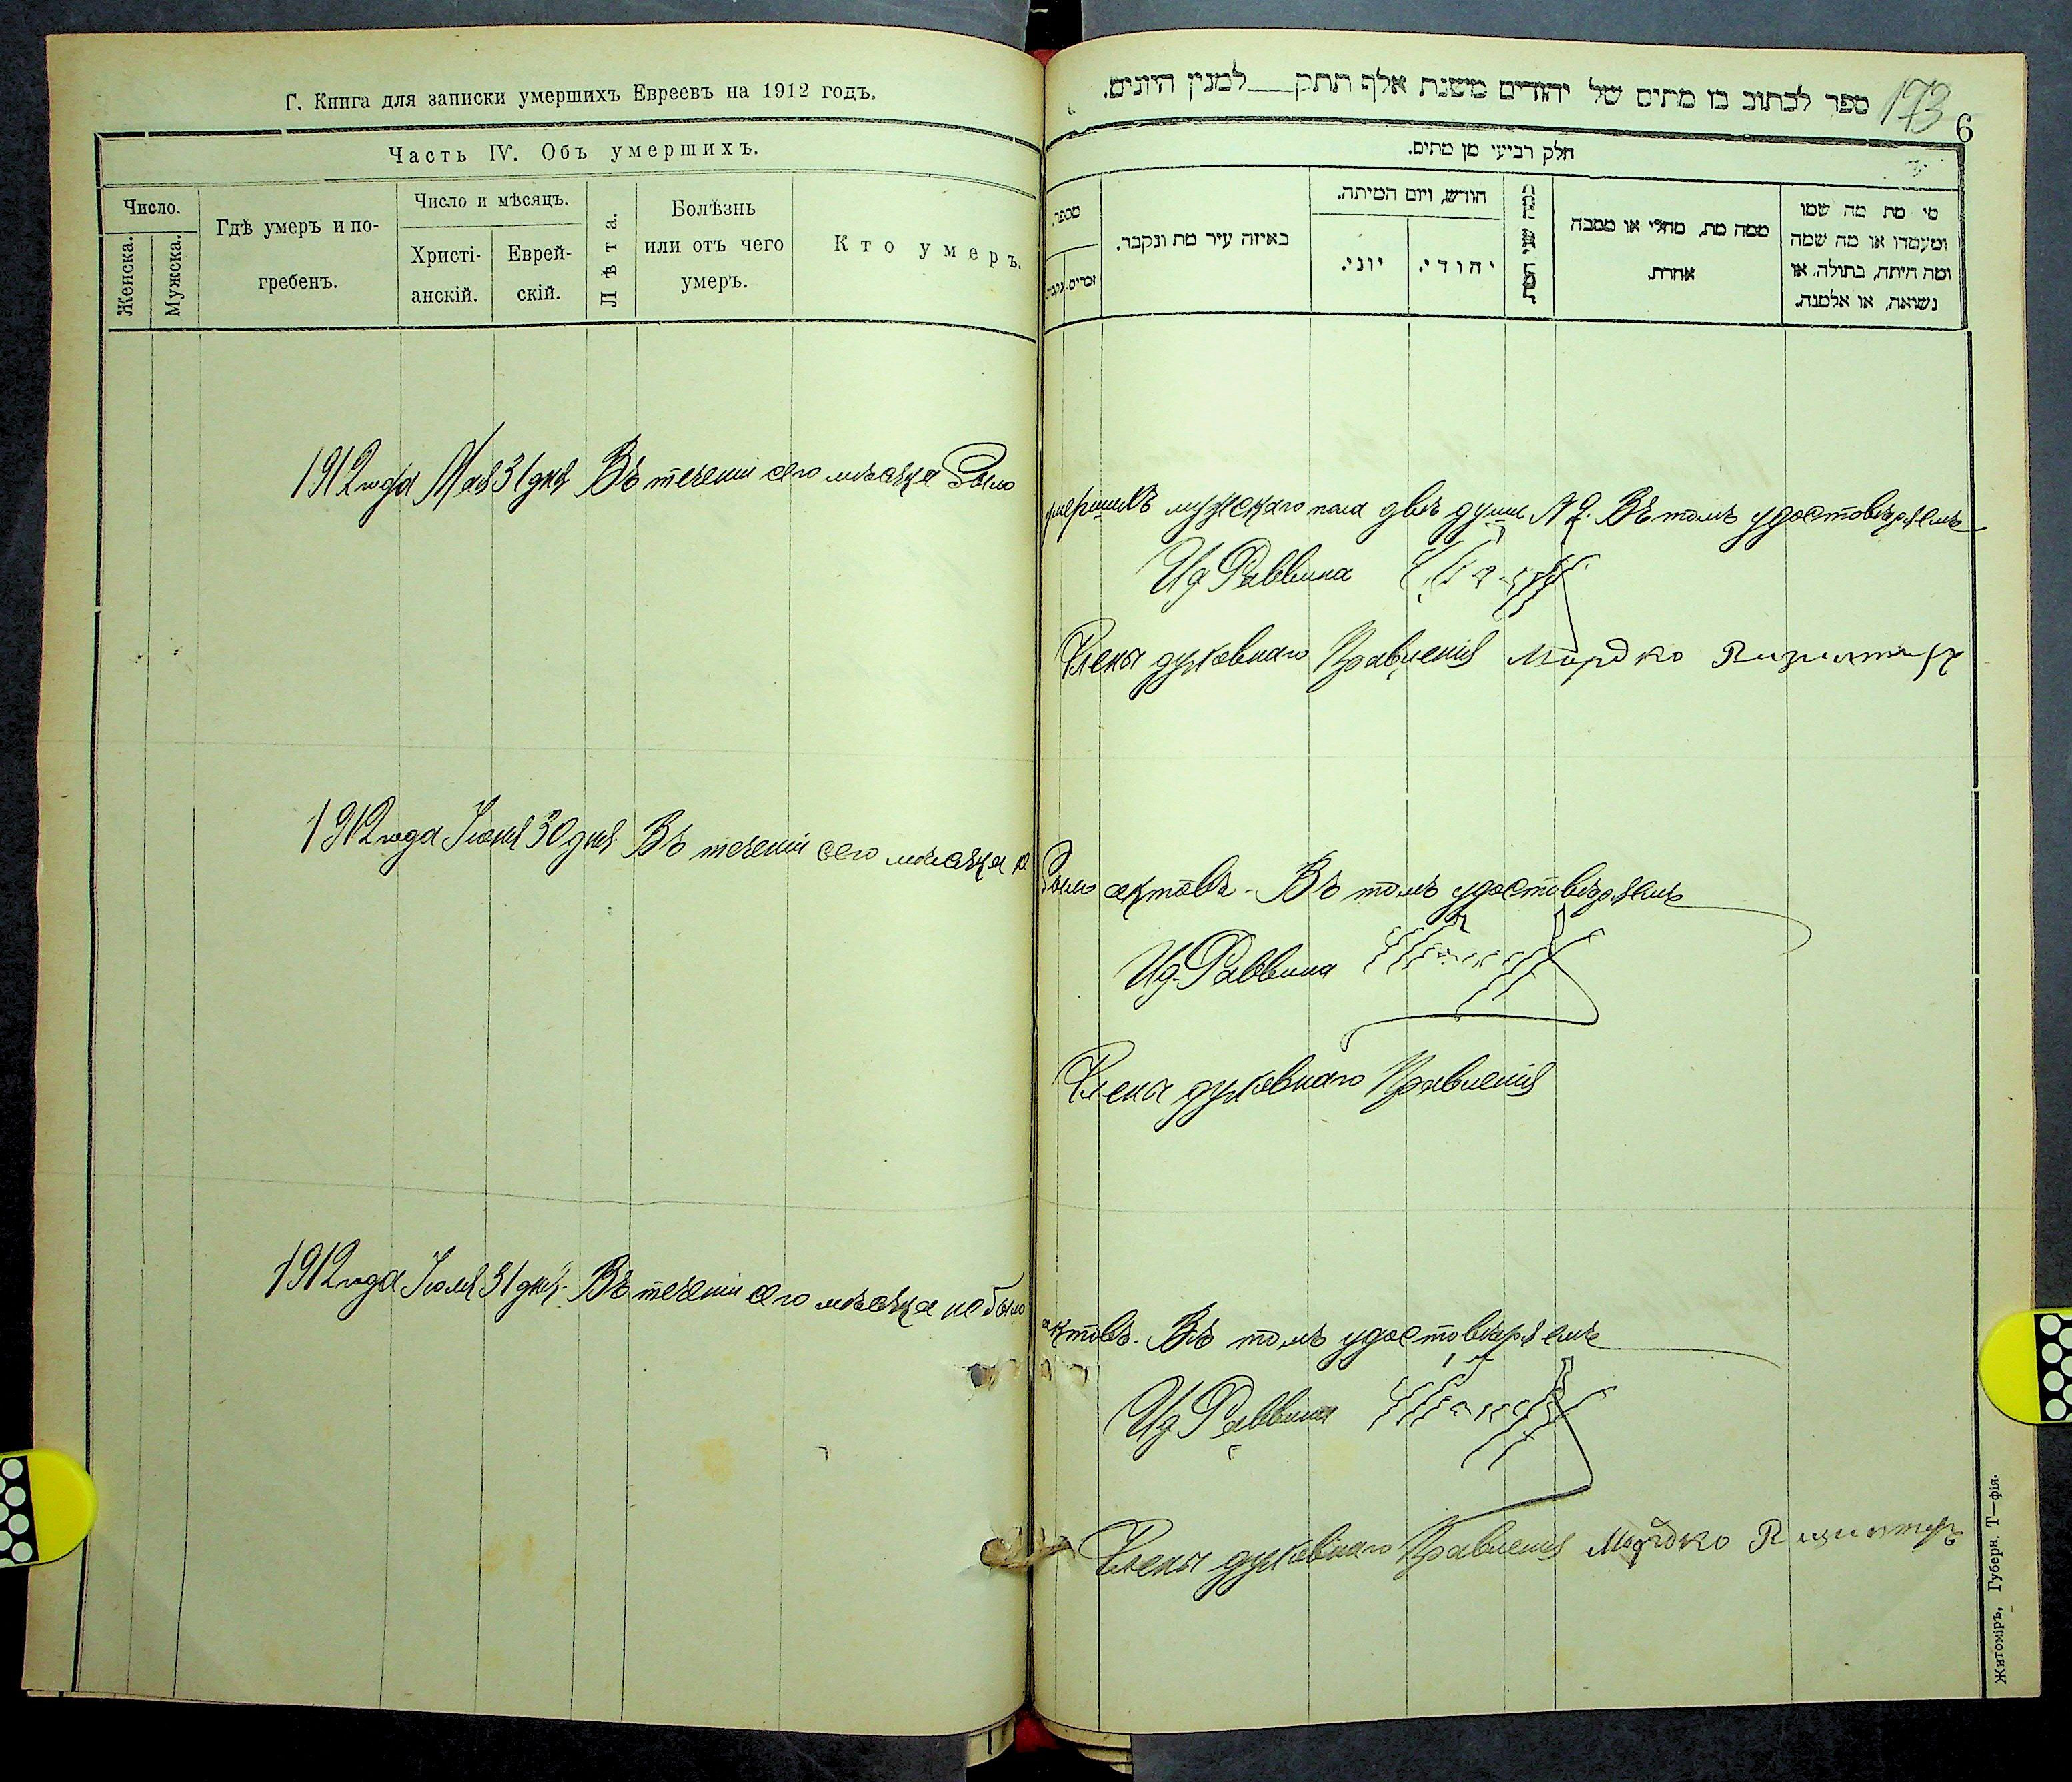 Г. Книга для записки умершихъ Евреевъ на 1912 годъ.
Часть IV. Объ умершихъ.
Число.
Женска.
Мужска.
Гдѣ умеръ и по-
гребенъ.
Число и мѣсяцъ.
Христі-
анскій.
Еврей-
скій.
Лѣта.
Болѣзнь
или отъ чего
умеръ.
Кто умеръ.
ספר לכתוב בו מתים של יהודים משנת אלף תתק___למנין היונים.
173
6
חלק רביעי מן מתים.
מי מת מה שמו
ומעמדו או מה שמה
ומה היתה, בתולה. או
נשואה, או אלמנה.
ממה מת, מחלי או מסבה
אחרת.
חודש, ויום המיתה.
יהודי.
יוני.
באיזה עיר מת ונקבר.
מספר.
זכרים.
1912 года Мая 31 дня Въ теченіи сего мѣсяца было умершихъ мужскаго пола двѣ души № 2. Въ томъ удостовѣряемъ
Ид Раввина
Члены духовнаго Правленія Мордко
1912 года Іюня 30 дня Въ теченіи сего мѣсяца не было актовъ - Въ томъ удостовѣряемъ
Ид. Раввина
Члены духовнаго Правленія
1912 года Іюля 31 дня. Въ теченіи сего мѣсяца не было актовъ. Въ томъ удостовѣряемъ
Ид. Раввина
Члены духовнаго Правленія Мордко
Житоміръ, Губерн. Т—фія.